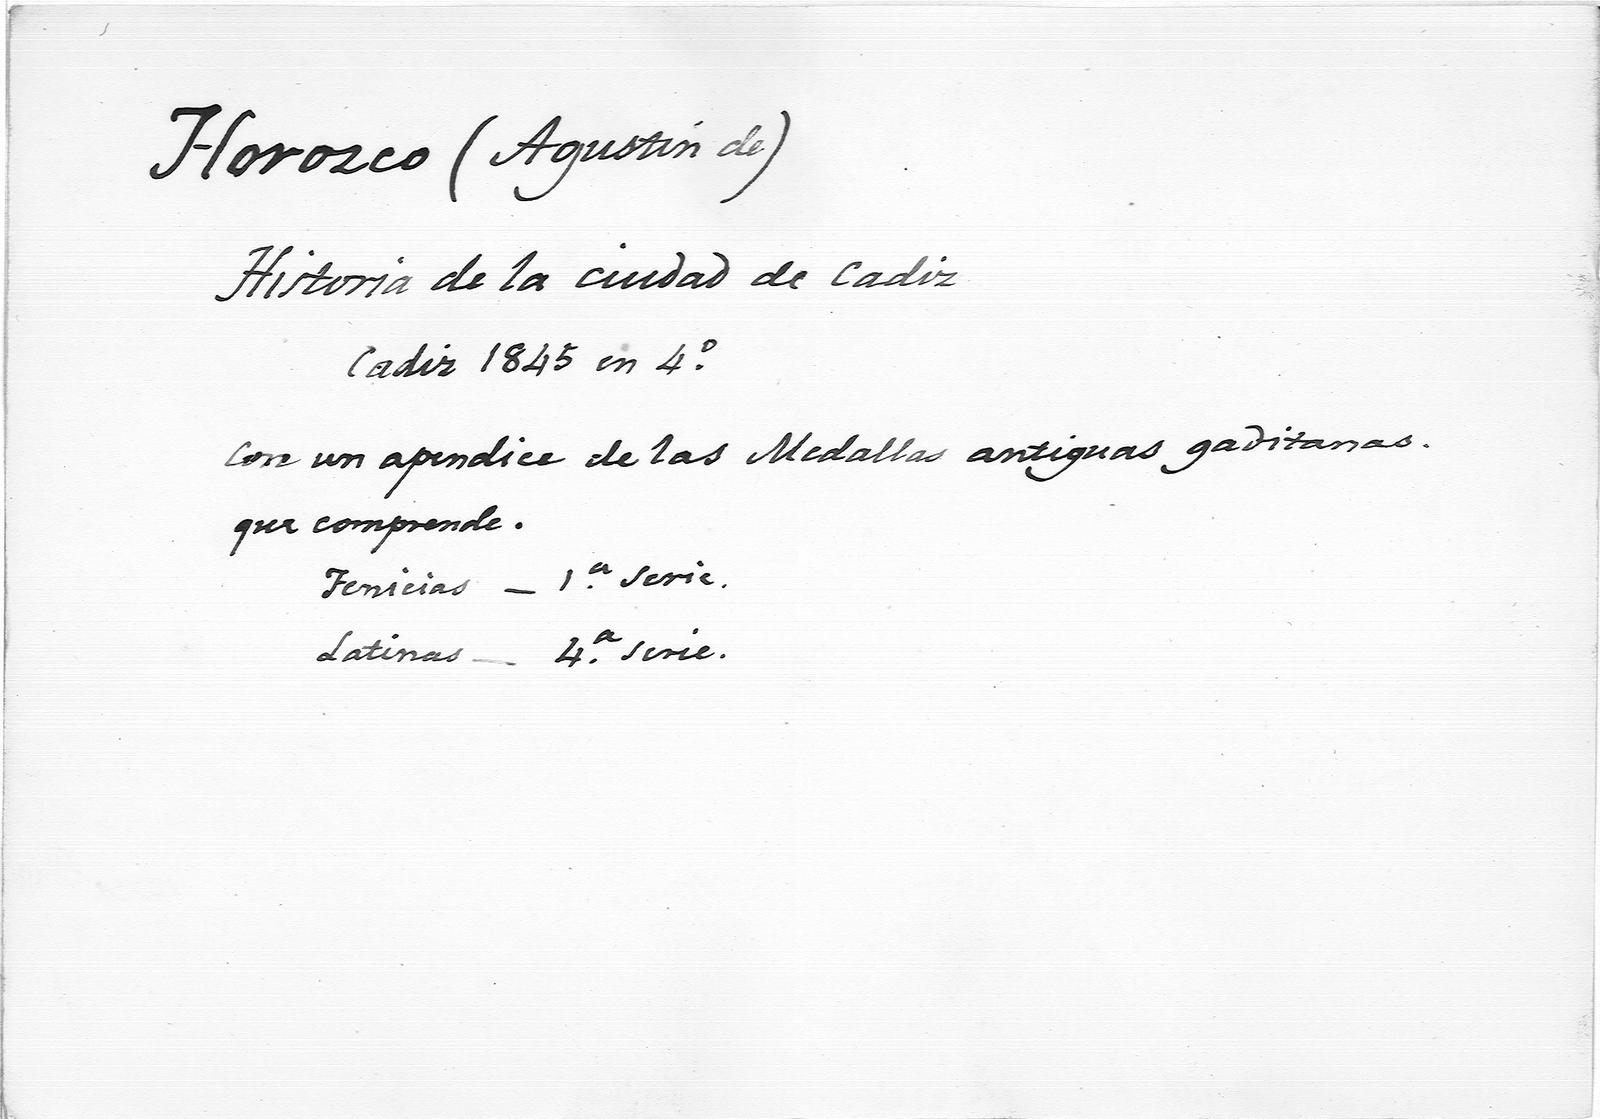 Horozco (Agustin de)
Historia de la ciudad de Cadiz
Cadiz 1845 en 4.º
Con un apendice de las Medallas antiguas gaditanas.
que comprende.
Fenicias — 1.ª serie.
Latinas — 4.ª serie.